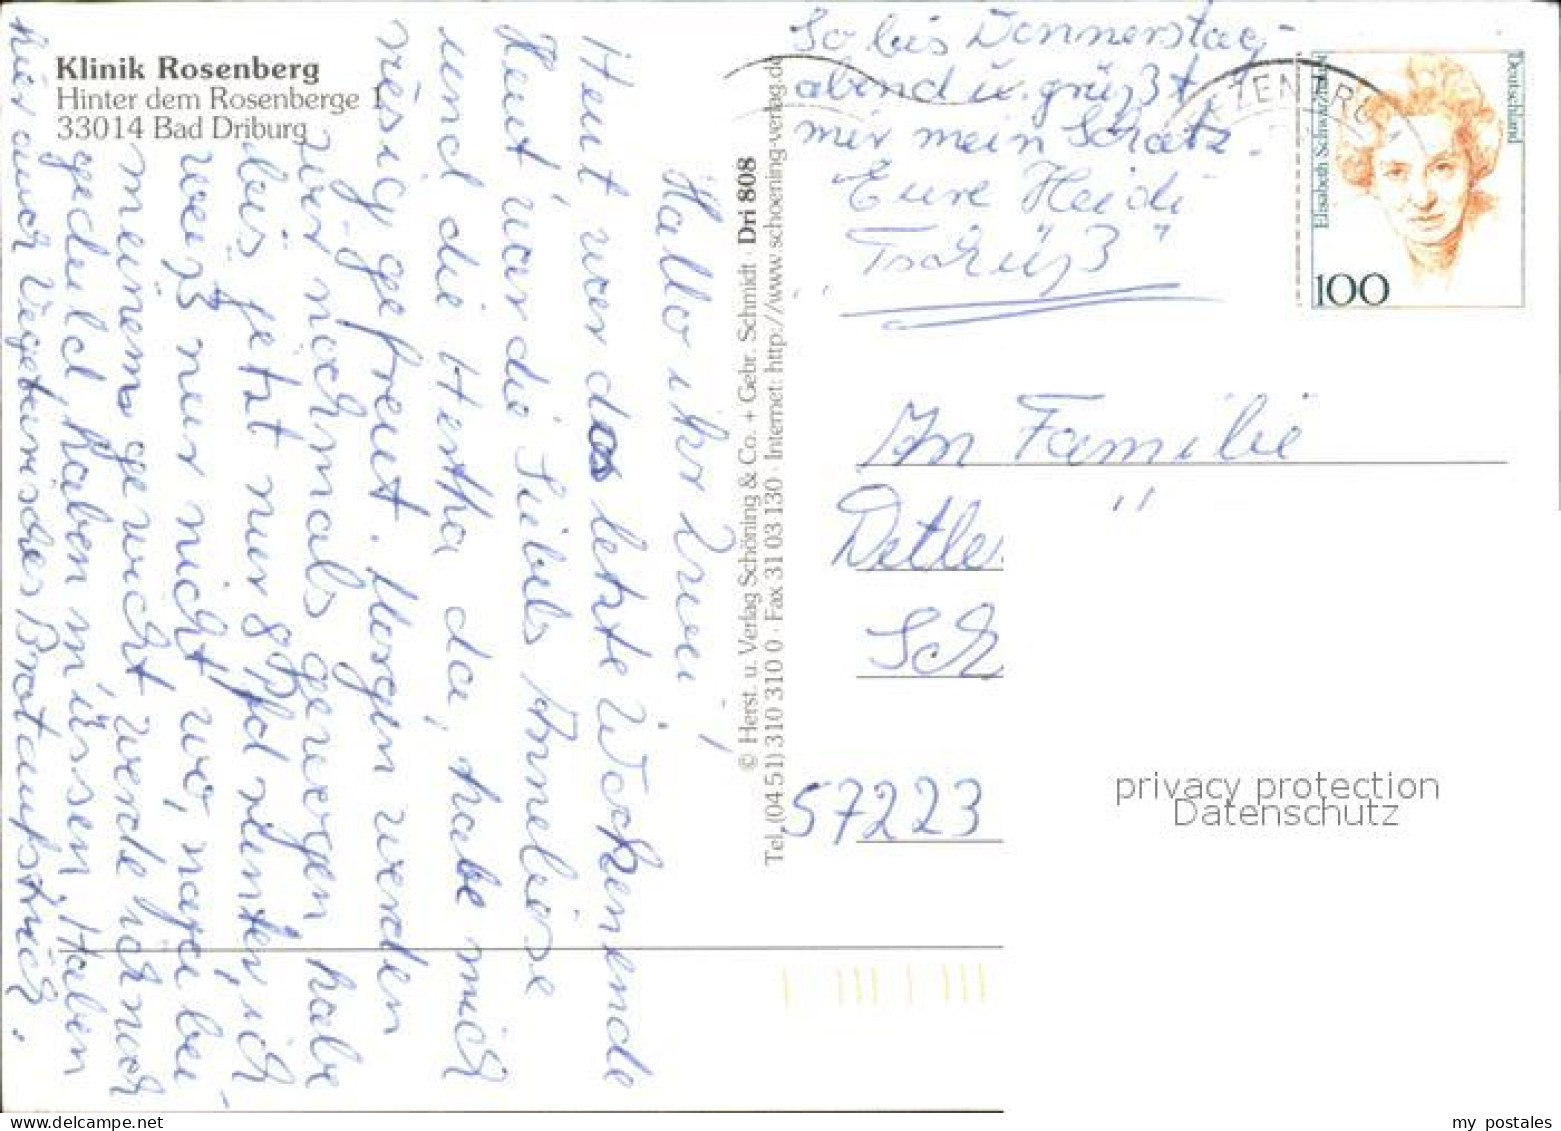 Klinik Rosenberg
Hinter dem Rosenberge 1
33014 Bad Driburg
Hallo ihr Zwei!
Heut war das letzte Wochenende
Heut war die Anneliese
und die Hertha da, habe mich
riesig gefreut. Morgen werden
wir nochmals gewogen habe
bis jetzt nur 8 Pfd runter, ich
weiß nur nicht wo, naja bei
meinem gewicht werde ich noch
geduld haben müssen. Haben
hier auch Vegetarisches Brotaufstrich.
© Herst. u. Verlag Schöning & Co. + Gebr. Schmidt · Dri 808
Tel. (04 51) 310 310 0 · Fax 31 03 130 · Internet: http://www.schoening-verlag.de
So bis Donnerstag-
abend u. grüßt
mir mein Schatz.
Eure Heidi
"Tschüß"
Deutschland
Elisabeth Schwarzhaupt
100
An Familie
Detle
Sch
57223
privacy protection
Datenschutz
my postales